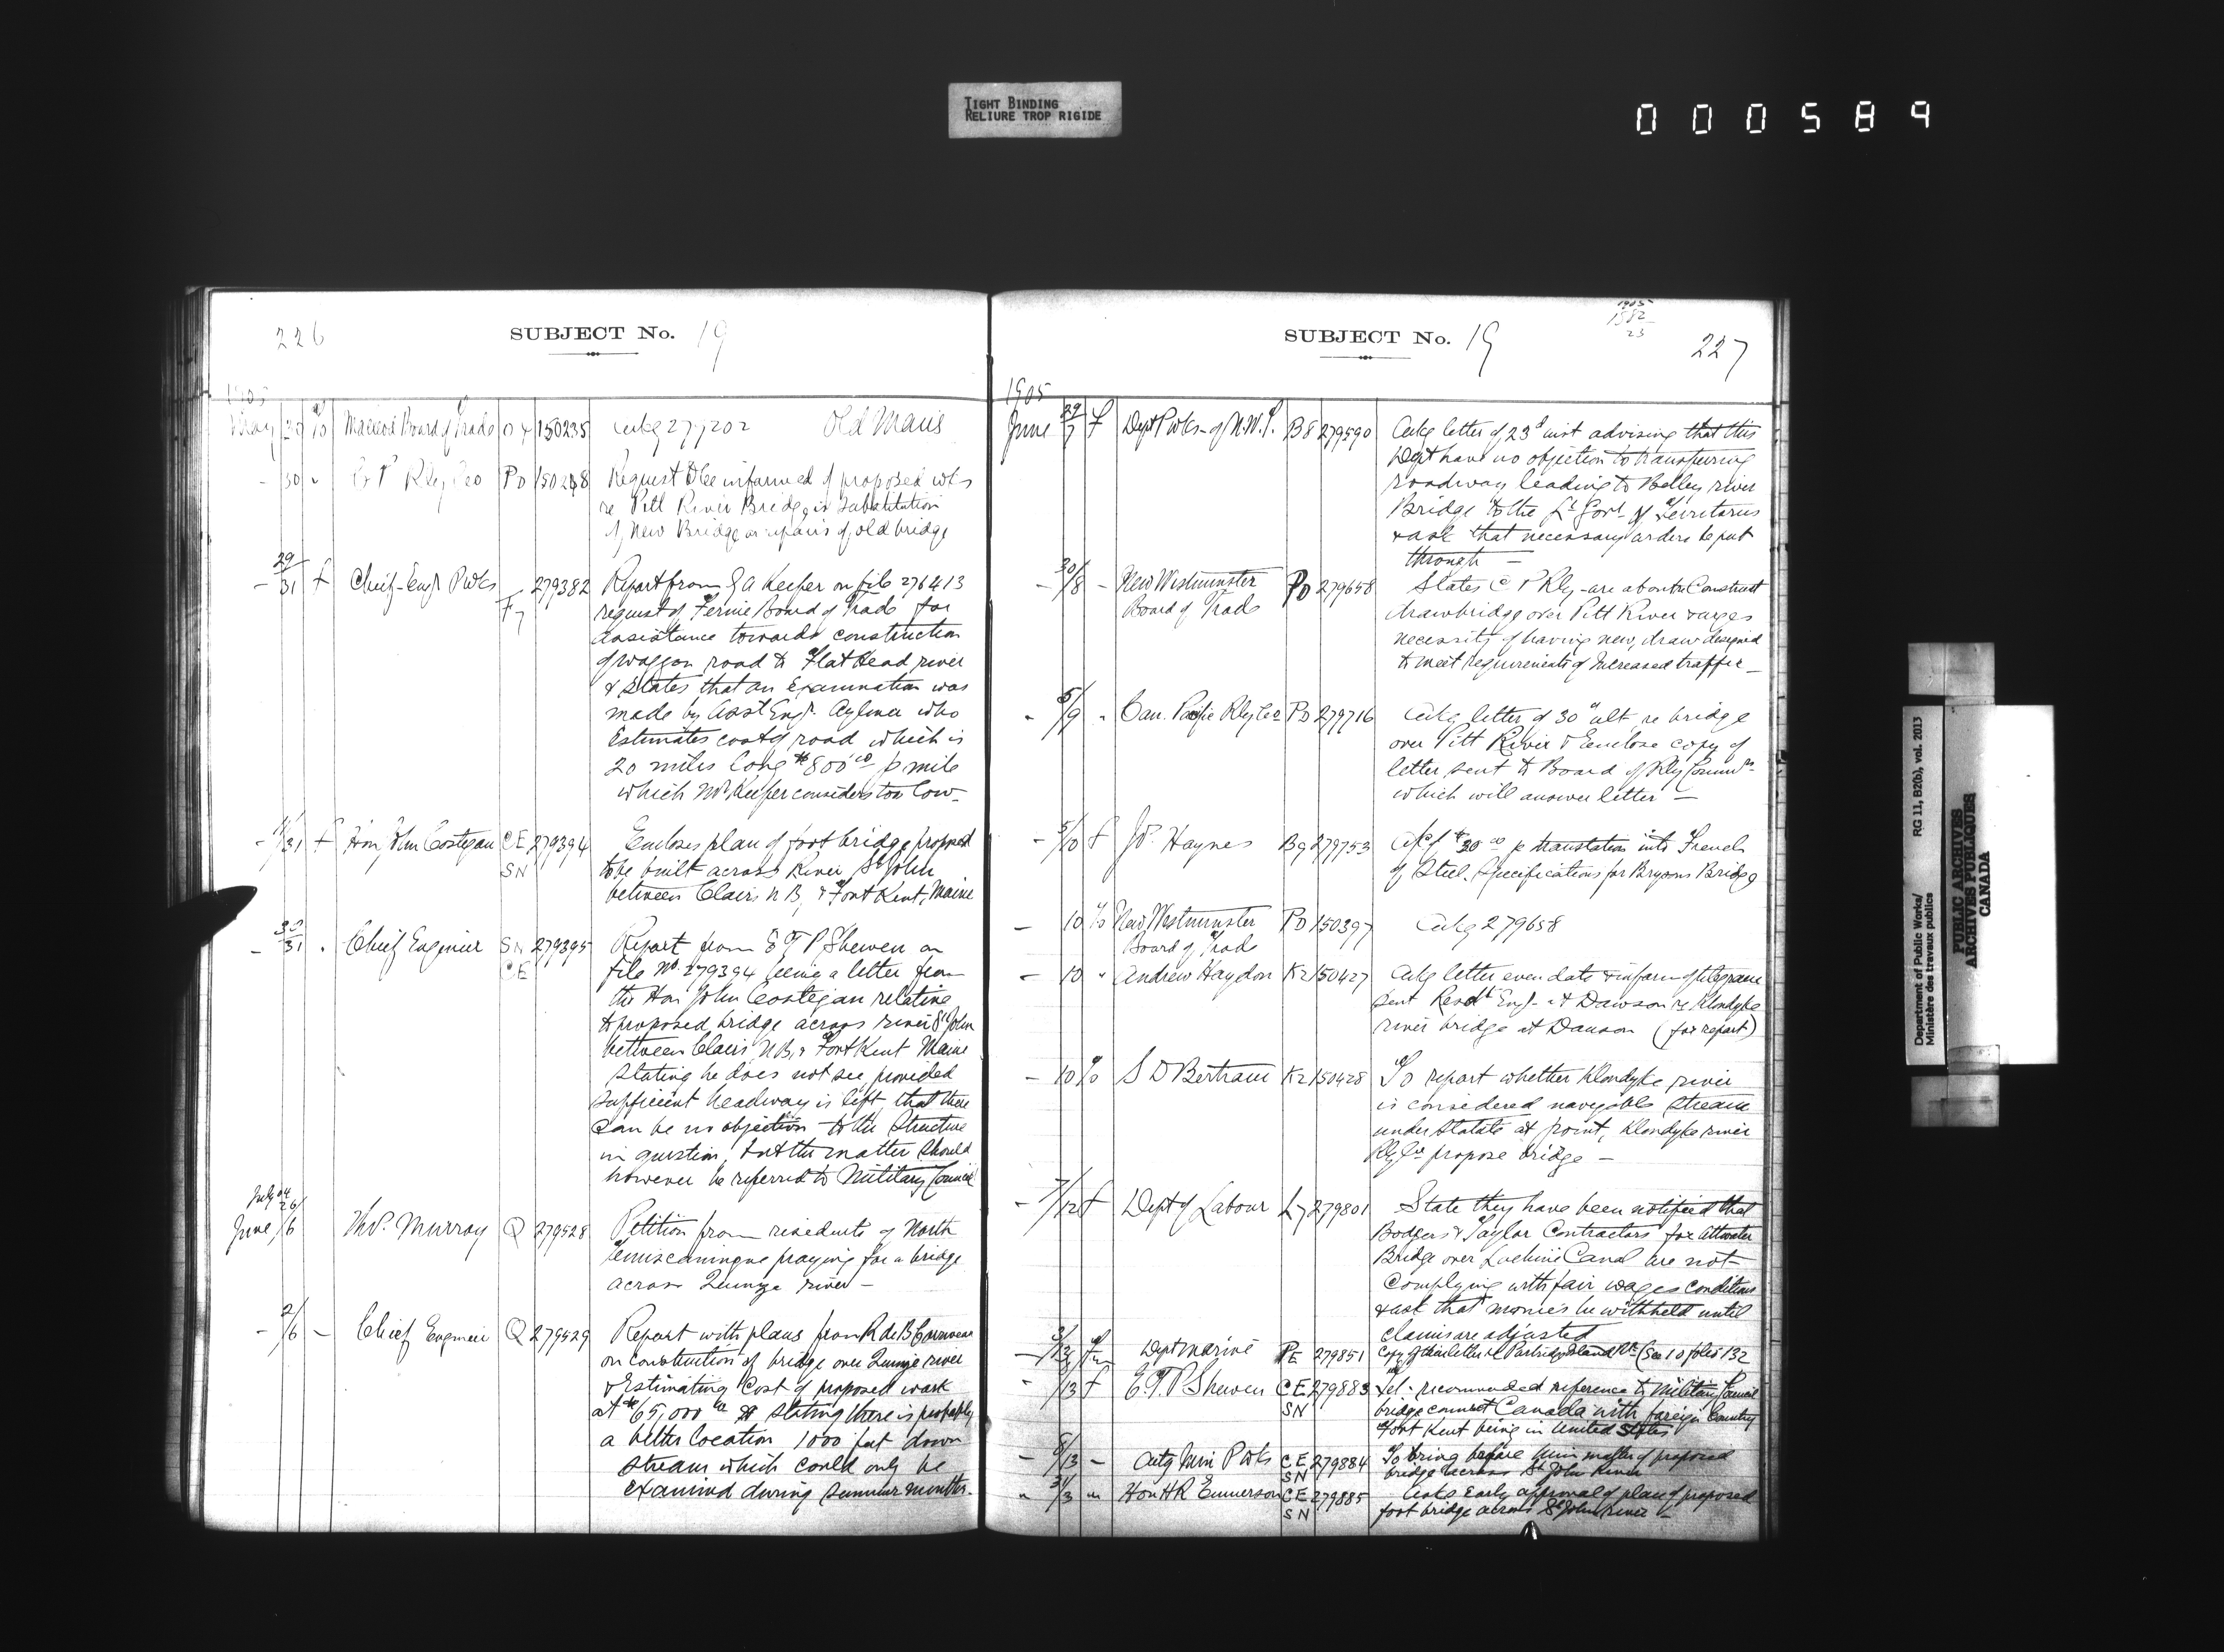 TIGHT BINDING
RELIURE TROP RIGIDE
000589
226
SUBJECT No. 19
1905
May 30 To Macleod Board of Trade 150235 Ackg 277202 Old Mans
- 30 " C P Rly Co PD 150248 Request to be informed of proposed wks
re Pitt River Bridge is substitution
of New Bridge or repairs of old bridge
29/31 f Chief Engr P Wks F7 279382 Report from G A Keefer on file 276413
request of Fernie Board of Trade for
assistance towards construction
of waggon road to Flat Head river
& states that an Examination was
made by Asst Engr. Aylmer who
Estimates cost of road which is
20 miles long $800.00 p mile
which Mr. Keefer considers too low-
- 31 f Hon John Costigan CE SN 279394 Encloses plan of foot bridge proposed
to be built across River St John
between Clairs N B, & Fort Kent, Maine
30/31 " Chief Engineer SN CE 279395 Report from E T P Shewen on
file No. 279394 being a letter from
the Hon John Costigan relative
to proposed bridge across river St John
between Clairs, N B, & Fort Kent Maine
stating he does not see, provided
sufficient headway is left, that there
can be no objection to the structure
in question, but the matter should
however be referred to Military Council
July 04
26/
June /6 Thos. Murray Q 279528 Petition from residents of North
Temiscamingue praying for a bridge
across Quinze river -
- 2/6 - Chief Engineer Q 279529 Report with plans from R de B Corriveau
on construction of bridge over Quinze river
& Estimating Cost of proposed work
at $65,000 stating there is probably
a better location 1000 feet down
stream which could only be
examined during summer months.
1905
1882
23
SUBJECT No. 19
227
1905
June 29/7 f Dept P Wks of N.W.T. B8 279590 Ackg letter of 23d inst advising that this
Dept have no objection to transferring
roadway leading to Belley river
Bridge to the Lt Govt of Territories
& ask that necessary orders be put
through -
- 30/8 - New Westminster PD 279658 States C P Rly are about to Construct
Board of Trade drawbridge over Pitt River & urges
necessity of having new, draw designed
to meet requirements of Increased traffic -
- 5/9 " Can. Pacific Rly Co PD 279716 Ackg letter of 30" ult re bridge
over Pitt River & Enclose copy of
letter sent to Board of Rly Commrs
which will answer letter -
- 5/10 f J P. Haynes B9 279753 A/c of $30.00 p translation into French
of Steel Specifications for Brysons Bridge
- 10 To New Westminster PD 150397 Ackg 279658
Board of Trade
- 10 " Andrew Haydon K2 150427 Ackg letter even date & inform of telegram
sent Resdt Engr at Dawson re Klondyke
river bridge at Dawson (for report)
- 10 To S D Bertram K2 150428 To report whether Klondyke river
is considered navigable stream
under statute at point, Klondyke river
Rly Co propose bridge -
- 7/12 f Dept of Labour L7 279801 State they have been notified that
Bodgers & Taylor Contractors for Attwater
Bridge over Lachine Canal are not
Complying with fair wages conditions
& ask that monies be withheld until
claims are adjusted
Dept Marine PE 279851 Copy of their letter re Partridge Island (See 10 folio 132
- /13 f E.T.P Shewen CE SN 279883 Tel- recommended reference to Military Council
bridge connect Canada with foreign Country
Fort Kent being in United States
- 8/13 - Actg Min P Wks CE SN 279884 To bring before him matter of proposed
bridge across St John River
" 31/3 " Hon H R Emmerson CE SN 279885 Asks Early approval of plan of proposed
foot bridge across St John river -
Department of Public Works/
Ministère des travaux publics
RG 11, B2(b), vol. 2013
PUBLIC ARCHIVES
ARCHIVES PUBLIQUES
CANADA